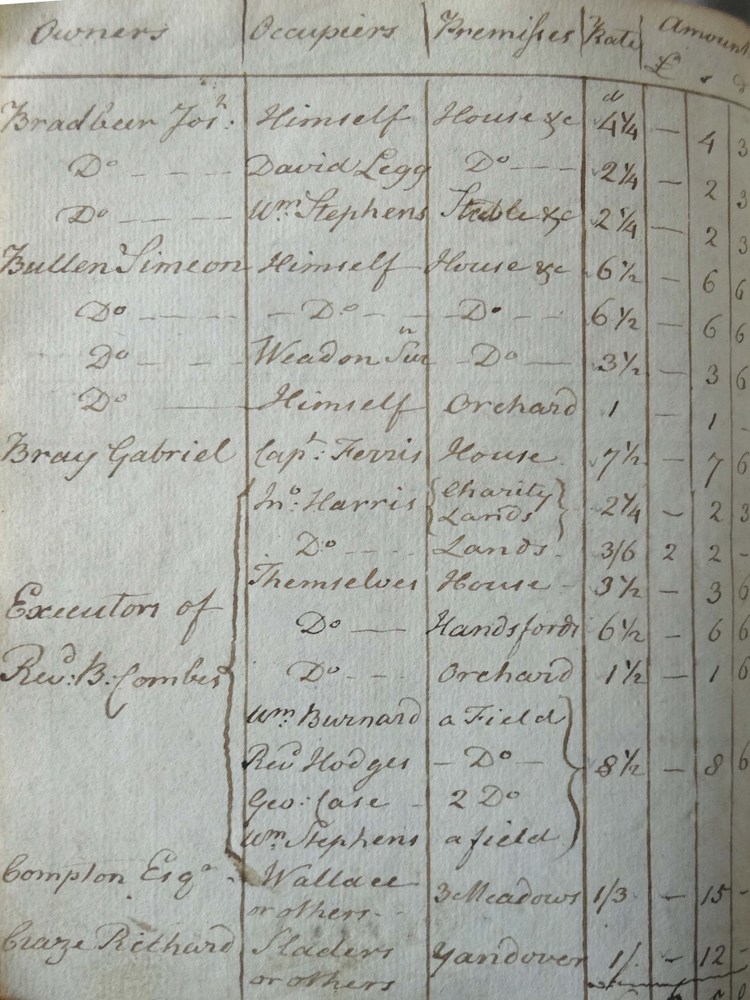 Owners Occupiers Premisses Rate Amount
£ s d
d
Bradbeer Josh: Himself House &c 4 1/4 — 4 3
Do - - - - David Legg Do - - - 2 1/4 — 2 3
Do - - - - Wm Stephens Stable &c 2 1/4 — 2 3
Bullen Simeon Himself House &c 6 1/2 — 6 6
Do - - - - Do - - Do - - 6 1/2 — 6 6
Do - - - Weadon Sur Do — 3 1/2 — 3 6
Do — Himself Orchard 1 — 1 -
Bray Gabriel Capt: Ferris House 7 1/2 — 7 6
Jno: Harris {Charity Lands} 2 1/4 — 2 3
Do - - - Lands - 3/6 2 2 -
Themselves House - 3 1/2 — 3 6
Executors of Do — Handsfords 6 1/2 — 6 6
Revd: B: Combes Do - - - Orchard 1 1/2 — 1 6
Wm Burnard a Field
Revd Hodges - Do - 8 1/2 — 8 6
Geo: Case - 2 Do
Wm Stephens a field
Compton Esqr - Wallace
or others - - 3 Meadows 1/3 — 15 -
Craze Richard Sladers Yandover 1/. - 12 -
or others